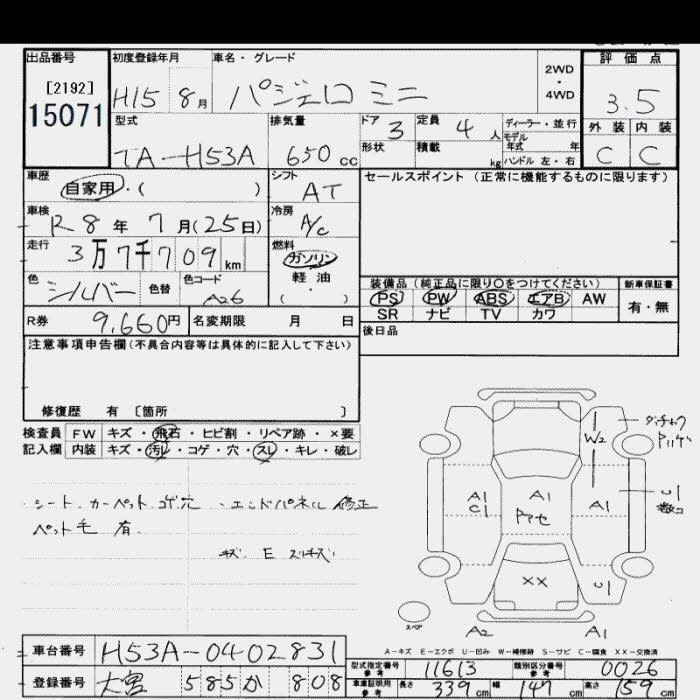 出品番号 初度登録年月 車名・グレード 評価点
[2192]
15071
H15 8月 パジェロ ミニ 2WD・4WD 3.5
型式 排気量 ドア 3 定員 4人 ディーラー・並行 外装 内装
TA-H53A 650cc 形状 積載 kg モデル年式 年 ハンドル 左・右 C C
車歴 自家用・( ) シフト AT セールスポイント(正常に機能するものに限ります)
車検 R8年 7月(25日) 冷房 A/C
走行 3万7千709km 燃料 ガソリン 軽油・( )
色 シルバー 色替 色コード A26
装備品(純正品に限り○をつけてください) 新車保証書
PS PW ABS エアB AW 有・無
SR ナビ TV カワ
R券 9,660円 名変期限 月 日 後日品
注意事項申告欄(不具合内容等は具体的に記入して下さい)
修復歴 有 〔箇所 〕
検査員 FW キズ・飛石・ヒビ割・リペア跡・×要
記入欄 内装 キズ・汚レ・コゲ・穴・スレ・キレ・破レ
シート カーペット コゲ穴 ・エンドパネル 修正
ペット毛 有
キズ E スリキズ
W2
A1
C1
A1
A1
U1
XX
U1
スペア
A2 A1
A-キズ E-エクボ U-凹み W-補修跡 S-サビ C-腐食 XX-交換済
車台番号 H53A-0402831
登録番号 大宮 585 か 808
型式指定番号 参考 11613 類別区分番号 参考 0026
車車証明用 参考 長さ 339cm 幅 147cm 高さ 159cm